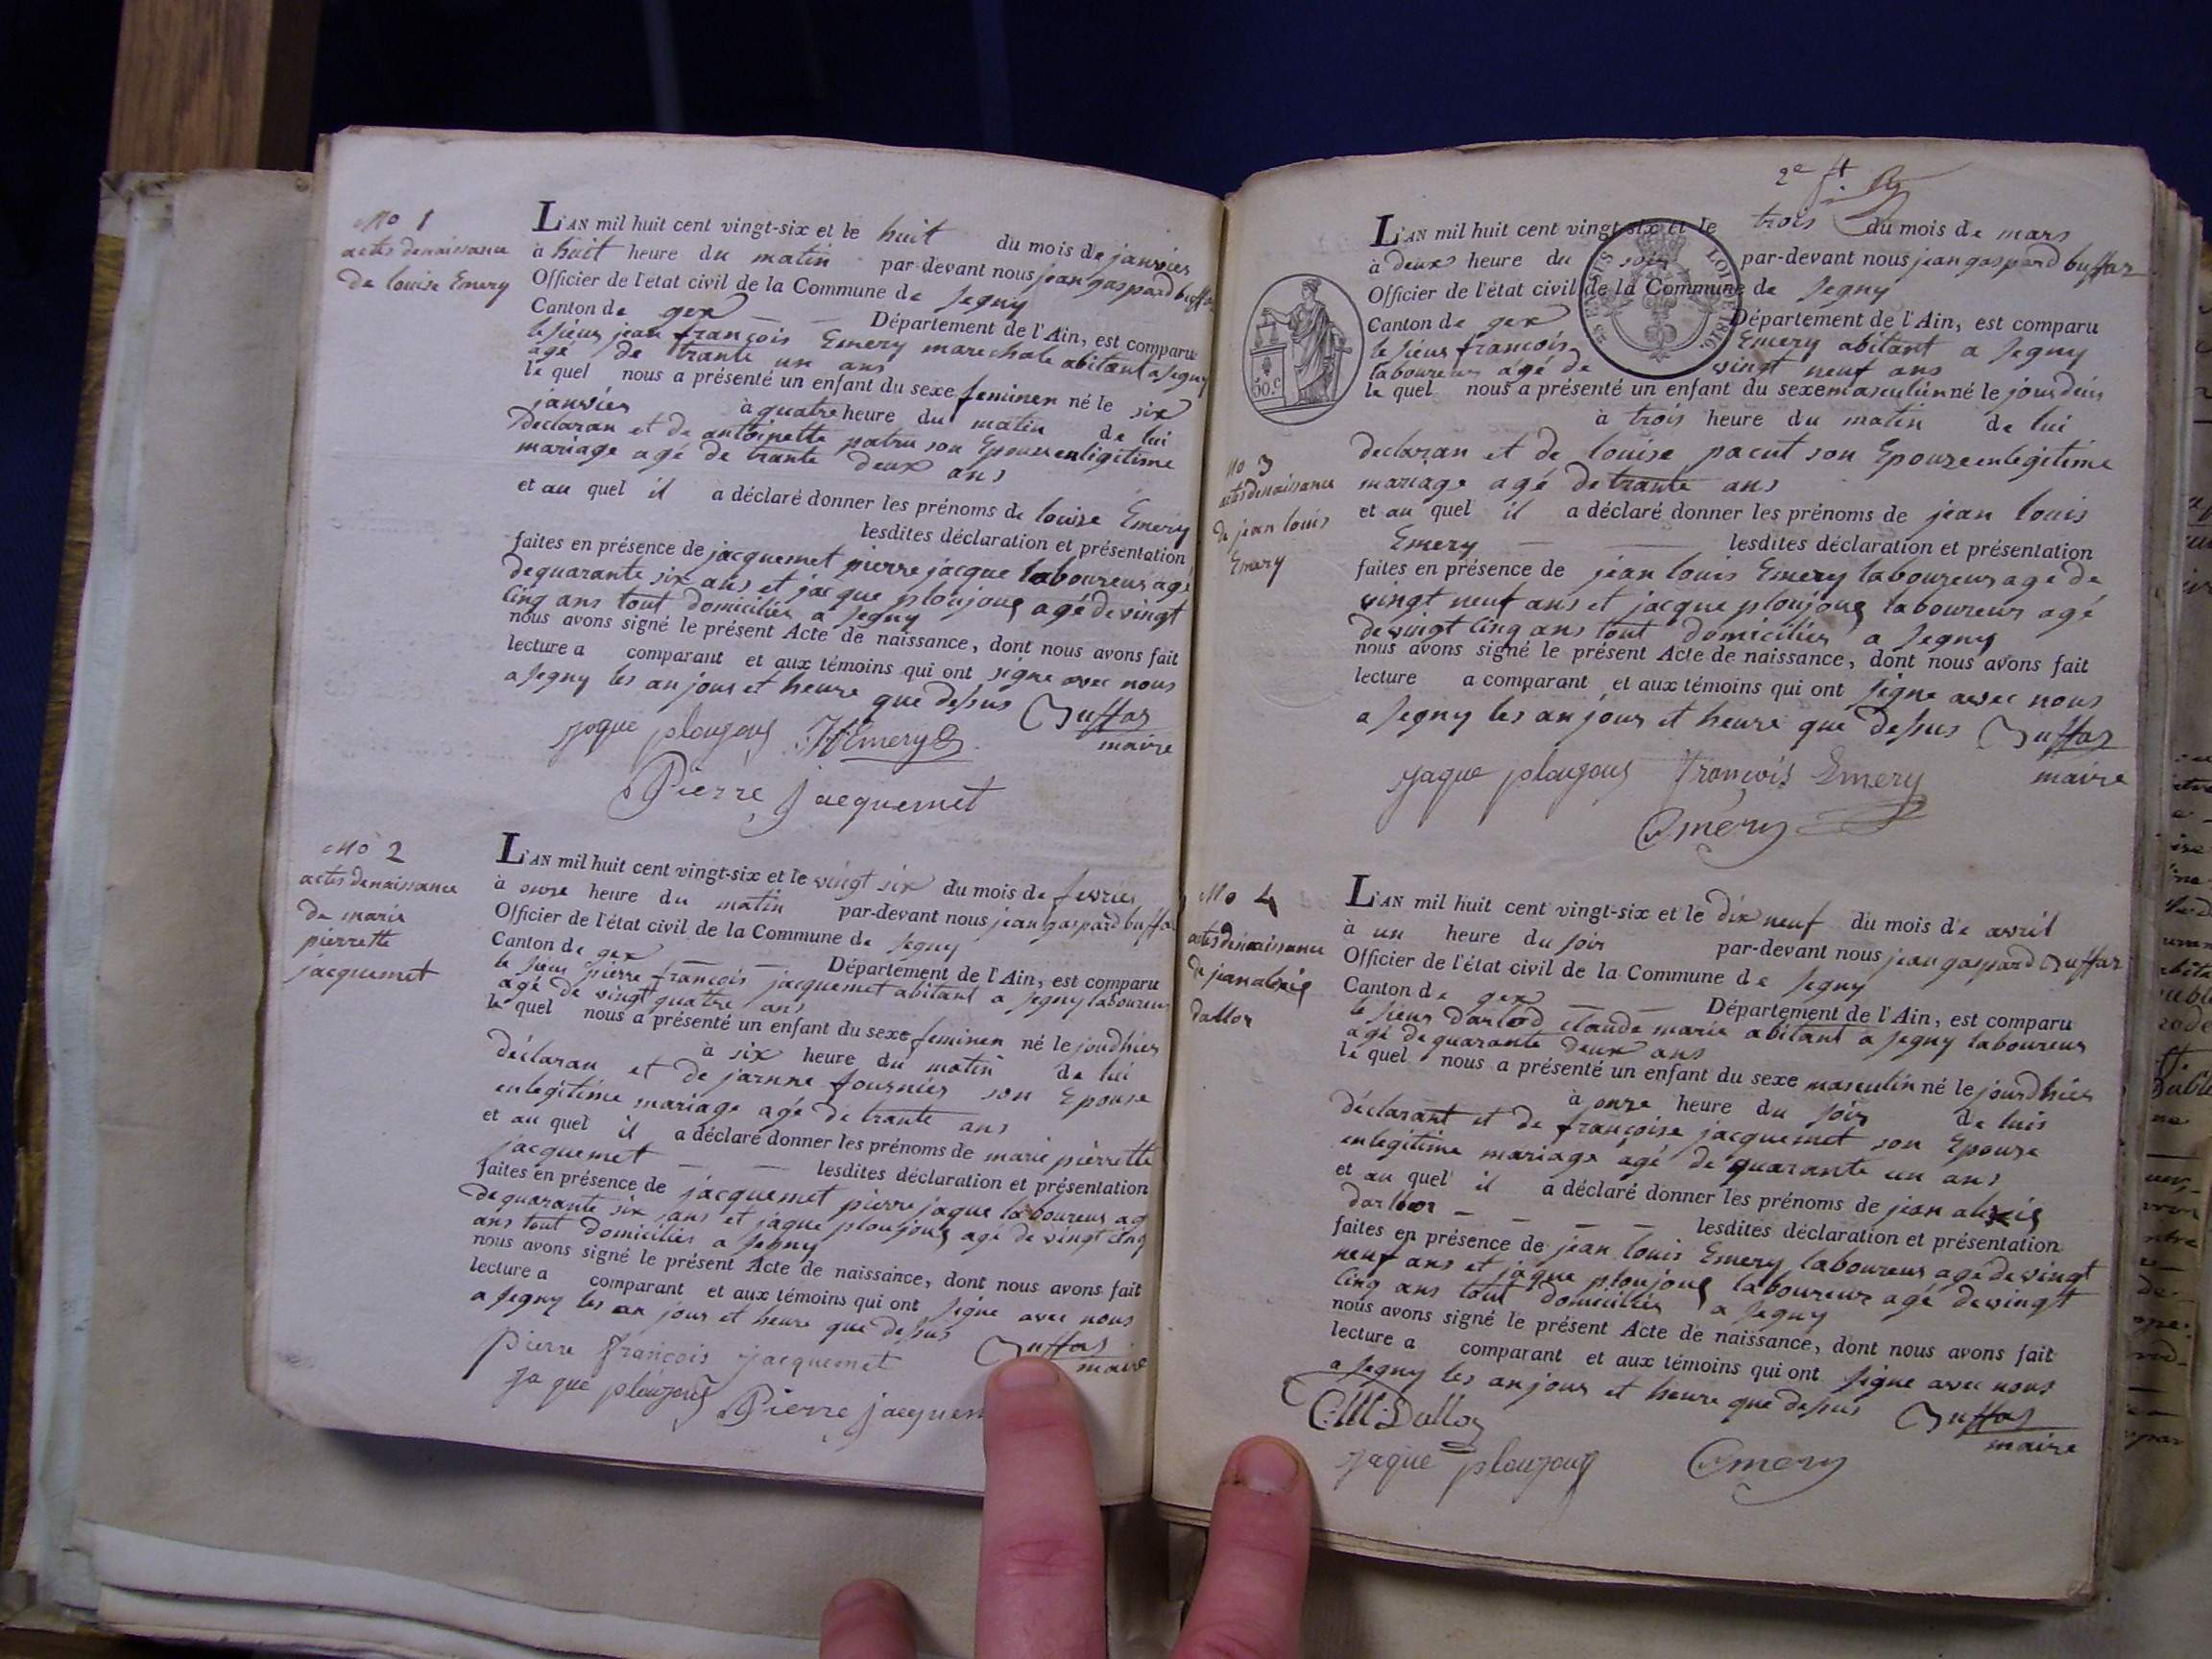 No 1
actes denaissance
de louise Emery
L'AN mil huit cent vingt-six et le huit du mois de janvier
à huit heure du matin par-devant nous jean gaspard buffaz
Officier de l'état civil de la Commune de segny
Canton de gex Département de l'Ain, est comparu
le sieur jean françois Emery marechale abitant a segny
agé de trante un ans
le quel nous a présenté un enfant du sexe feminen né le six
janvier à quatre heure du matin de lui
declaran et de antoinette patru son Epouse enligitime
mariage agé de trante deux ans
et au quel il a déclaré donner les prénoms de louise Emery
lesdites déclaration et présentation
faites en présence de jacquemet pierre jacque laboureur agé
dequarante six ans et jacque ploujoux agé de vingt
cinq ans tout domiciliés a segny
nous avons signé le présent Acte de naissance, dont nous avons fait
lecture a comparant et aux témoins qui ont signe avec nous
a segny les an jour et heure que desus Buffaz
maire
jaque ploujoux JF Emery
Pierre jacquemet
No 2
actes denaissance
de marie
pierrette
jacquemet
L'AN mil huit cent vingt-six et le vingt six du mois de fevrier
à onze heure du matin par-devant nous jean gaspard buffaz
Officier de l'état civil de la Commune de segny
Canton de gex Département de l'Ain, est comparu
le sieur pierre françois jacquemet abitant a segny laboureur
agé de vingt quatre ans
le quel nous a présenté un enfant du sexe feminen né le joudhier
à six heure du matin de lui
déclaran et de jarnne fournier son Epouse
enlegitime mariage agé de trante ans
et au quel il a déclaré donner les prénoms de marie pierrette
jacquemet lesdites déclaration et présentation
faites en présence de jacquemet pierre jaque laboureur ag
dequarante six ans et jaque ploujoux agé de vingt cinq
ans tout domiciliés a segny
nous avons signé le présent Acte de naissance, dont nous avons fait
lecture a comparant et aux témoins qui ont signe avec nous
a segny les an jour et heure que desus Buffaz
maire
pierre françois jacquemet
jaque ploujoux Pierre jacquem
2e ft.
L'AN mil huit cent vingt-six et le trois du mois de mars
à deux heure du soir par-devant nous jean gaspard buffaz
Officier de l'état civil de la Commune de segny
Canton de gex Département de l'Ain, est comparu
le sieur françois Emery abitant a segny
laboureur agé de vingt neuf ans
le quel nous a présenté un enfant du sexe masculien né le jourduis
à trois heure du matin de lui
declaran et de louise pacut son Epouze enlegitime
mariage agé de trante ans
et au quel il a déclaré donner les prénoms de jean louis
Emery lesdites déclaration et présentation
faites en présence de jean louis Emery laboureur agé de
vingt neuf ans et jacque ploujoux laboureur agé
de vingt cinq ans tout domiciliés a segny
nous avons signé le présent Acte de naissance, dont nous avons fait
lecture a comparant et aux témoins qui ont signe avec nous
a segny les an jour et heure que desus Buffaz
maire
jaque ploujoux françois Emery
Emery
50.c
LOI DE 1816.
No 3
actes denaissance
de jean louis
Emery
No 4
actes denaissance
de jean alexis
dalloz
L'AN mil huit cent vingt-six et le dix neuf du mois de avril
à un heure du soir par-devant nous jean gaspard Buffaz
Officier de l'état civil de la Commune de segny
Canton de gex Département de l'Ain, est comparu
le sieur darlod claude marie abitant a segny laboureur
agé dequarante deux ans
le quel nous a présenté un enfant du sexe masculin né le jourdhier
à onze heure du soir de luis
déclarant et de françoise jacquemet son Epouse
enlegitime mariage agé de quarante un ans
et au quel il a déclaré donner les prénoms de jean alexis
lesdites déclaration et présentation
faites en présence de jean louis Emery laboureur agé de vingt
neuf ans et jaque ploujoux laboureur agé de vingt
cinq ans tout domiciliés a segny
nous avons signé le présent Acte de naissance, dont nous avons fait
lecture a comparant et aux témoins qui ont signe avec nous
a segny les an jour et heure que desus Buffaz
maire
C.M. Dalloz
jaque ploujoux Emery